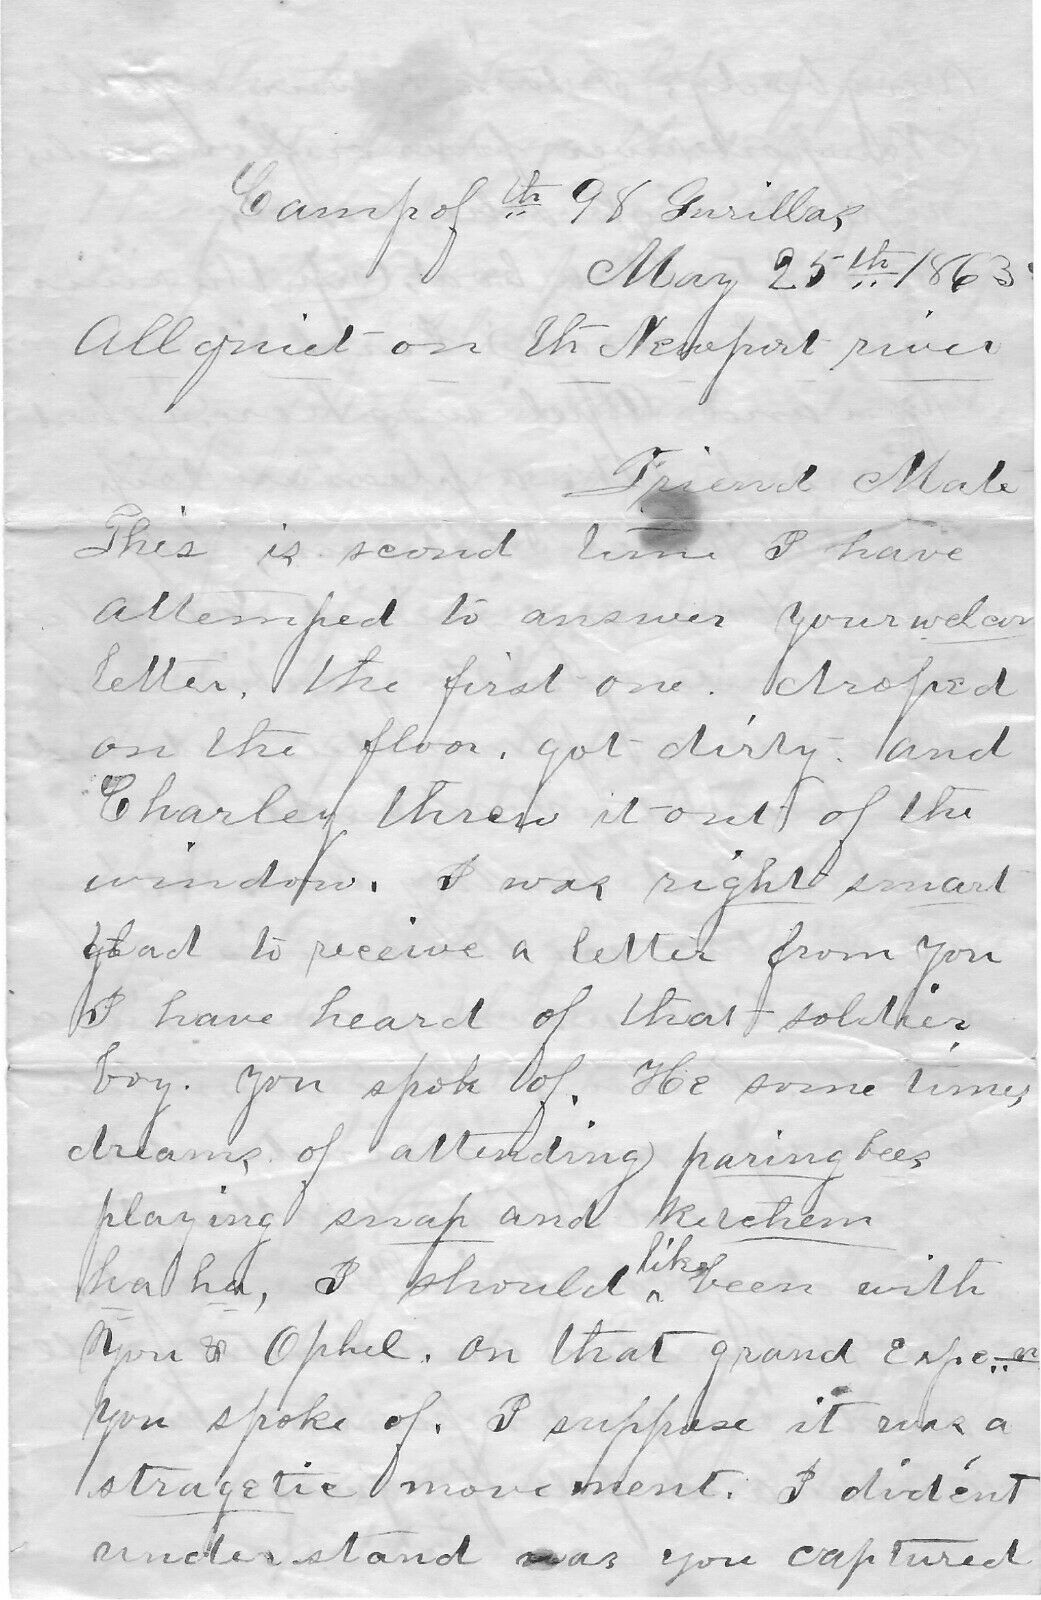 Camp of th 98 Gurillas
May 25th 1863
All quiet on th Newport river
Friend Mate
This is second time I have
attemped to answer your welcom
letter, the first one. droped
on the floor. got dirty. and
Charley threw it out of the
window. I was right smart
glad to receive a letter from you
I have heard of that soldier
boy. you spok of. He some times
dreams of attending paring bees
playing snap and
ha ha, I should like been with
you & Ophel. on that grand Expe-n
you spoke of. I suppose it was a
stragetic movement. I did'ent
understand was you captured